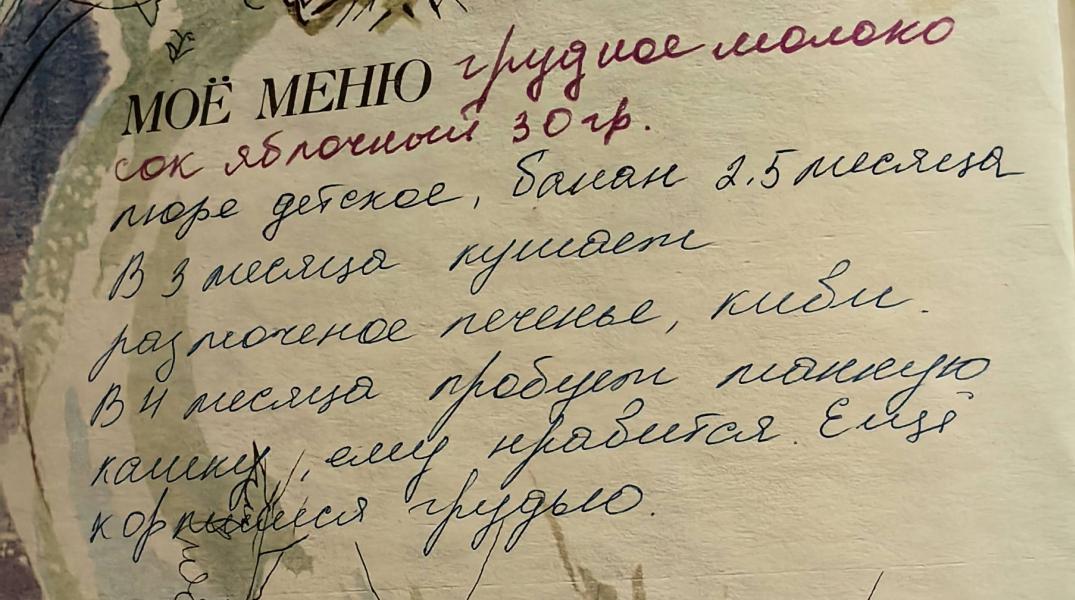 МОЁ МЕНЮ грудное молоко
сок яблочный 30 гр.
пюре детское, банан 2.5 месяца
В 3 месяца кушает
размоченое печенье, киви.
В 4 месяца пробует манную
кашку, ему нравится. Ещё
кормимся грудью.